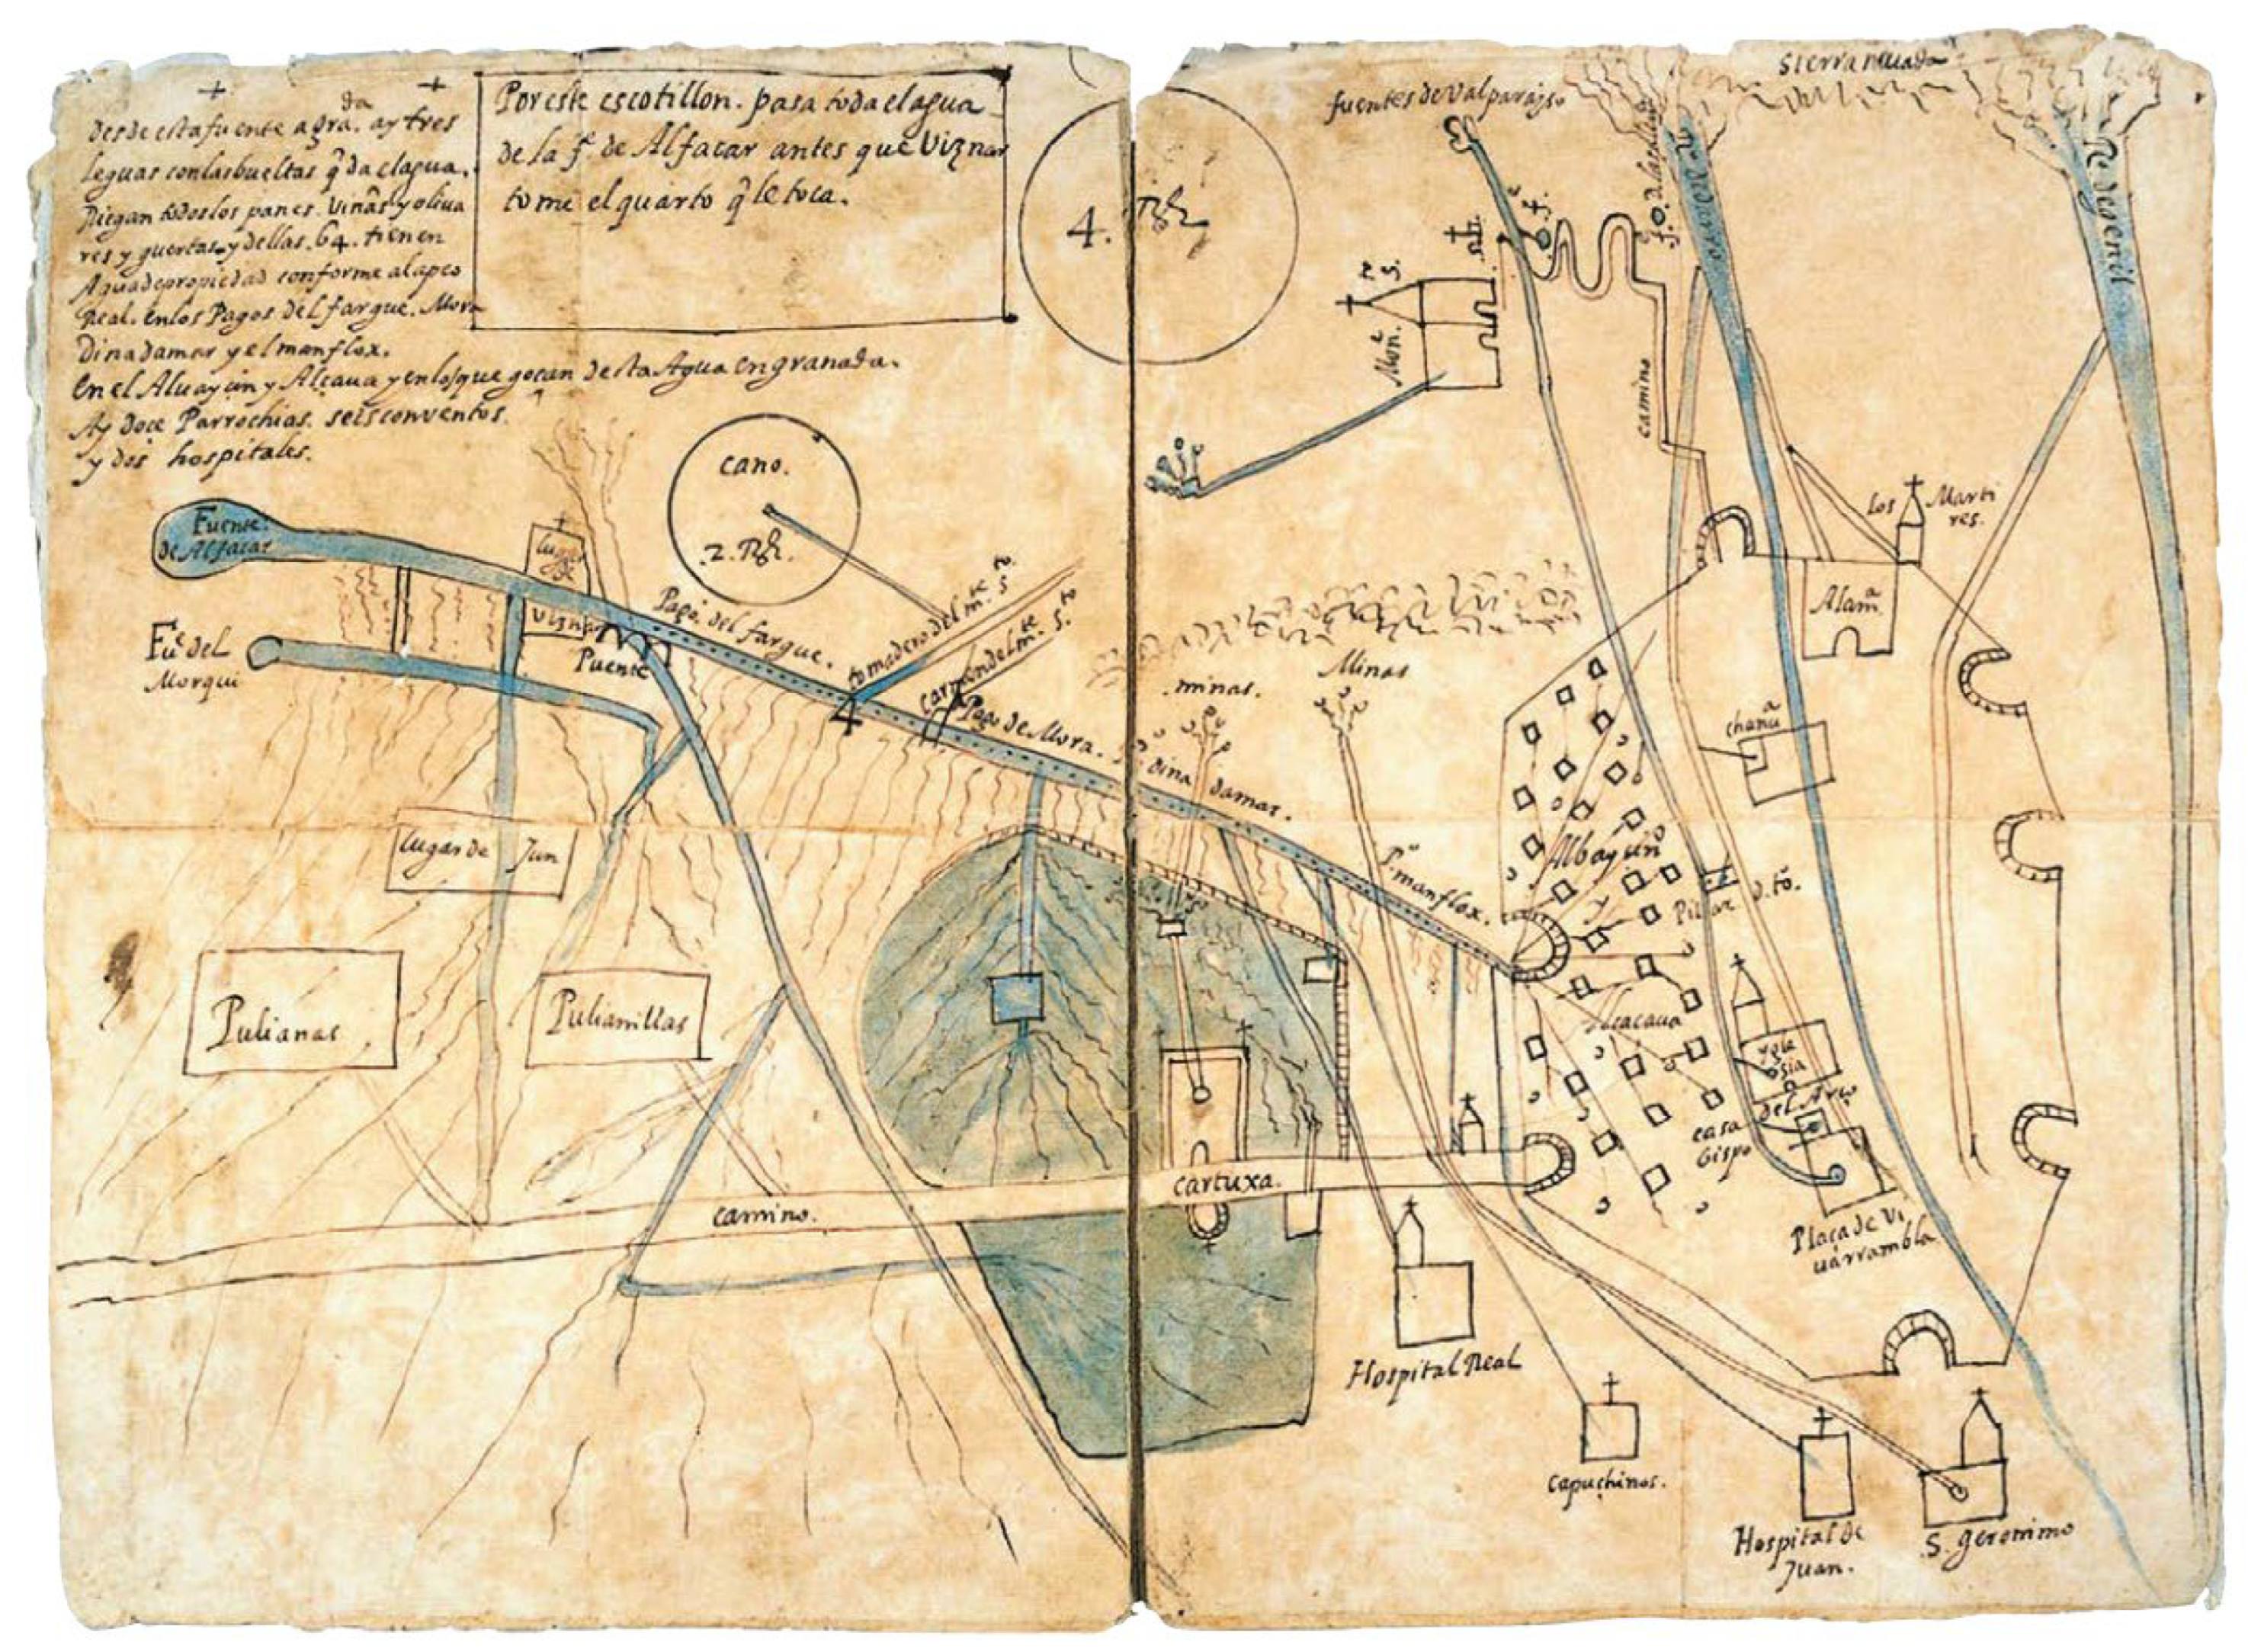 desde esta fuente a gra.da ay tres
leguas con las bueltas q̃ da el agua.
Riegan todos los panes. viñas y oliva
res y guertas y dellas. 64. tienen
Agua de propiedad conforme al apeo
Real. en los Pagos del fargue. Mora
Dinadamar y el manflox.
en el Albayçin y Alcaçaua y en los que goçan desta Agua en granada.
Ay doce Parrochias. seis conventos.
y dos hospitales.
Por este escotillon. pasa toda el agua
de la f.e de Alfacar antes que Viznar
tome el quarto q̃ le toca.
4. Rs.
cano.
2. Rs.
Fuente.
de Alfacar
lugar
de
Viznar
Puente
F.te del
Morqui
Pago. del fargue.
tomadero del m.te s.to
carmen del m.te s.to
4
Pago de Mora.
dina damar.
P.º manflox.
lugar de Jun
Pulianas
Pulianillas
camino.
cartuxa.
minas.
Minas
fuentes de Valparayso
Sierra neuada
R.º de darro
R.º de genil
Mon.e
camino
Los Marti
res.
Alam.a
chanc.a
Albayçin
Pilar d. to.
Alcacaua
ygle
sia
casa del Arço
bispo
Plaça de Vi
uarrambla
Hospital Real
Capuchinos.
Hospital de
Juan.
S. geronimo